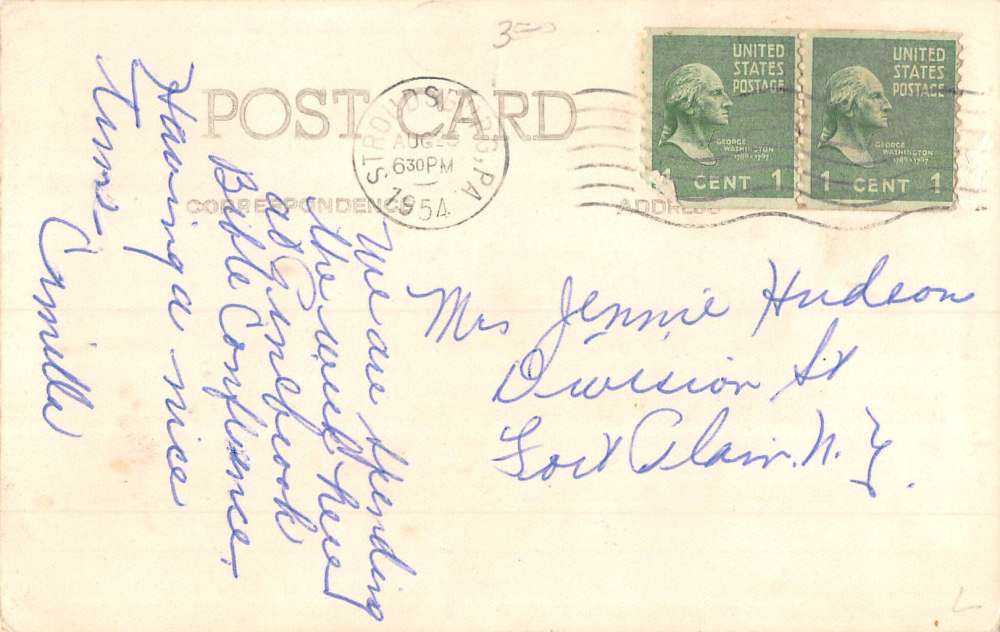 3=
POST CARD
CORRESPONDENCE
ADDRESS
STROUDSBURG, PA
AUG
630 PM
1954
UNITED
STATES
POSTAGE
GEORGE
WASHINGTON
1789-1797
1 CENT 1
UNITED
STATES
POSTAGE
GEORGE
WASHINGTON
1789-1797
1 CENT 1
We are spending
the week here
at Pinebrook
Bible Conference.
Having a nice
time -
Camille
Mrs Jennie Hudson
Division St
Fort Plain, N.Y.